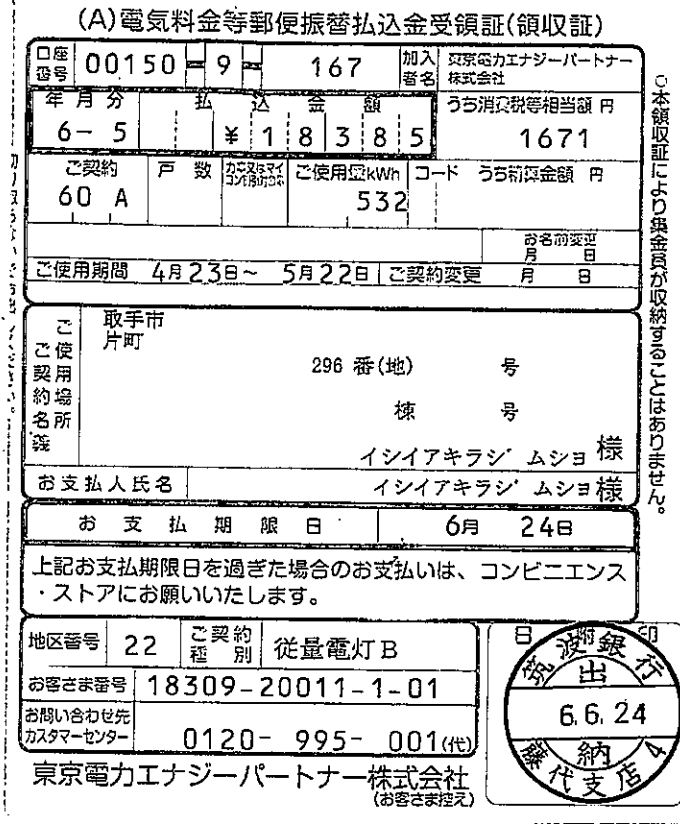 (A)電気料金等郵便振替払込金受領証(領収証)
口座番号 00150-9-167 加入者名 東京電力エナジーパートナー株式会社
年月分 払込金額 うち消費税等相当額 円
6-5 ¥18385 1671
ご契約 戸数 ご使用量kWh コード うち前算金額 円
60 A 532
お名前変更 月 日
ご使用期間 4月23日~ 5月22日 ご契約変更 月 日
ご使用場所
ご契約名義
取手市
片町
296 番(地) 号
棟 号
イシイアキラジムショ 様
お支払人氏名 イシイアキラジムショ 様
お支払期限日 6月 24日
上記お支払期限日を過ぎた場合のお支払いは、コンビニエンス
・ストアにお願いいたします。
地区番号 22 ご契約種別 従量電灯B
お客さま番号 18309-20011-1-01
お問い合わせ先
カスタマーセンター 0120- 995- 001(代)
東京電力エナジーパートナー株式会社
(お客さま控え)
日附印
筑波銀行
出
6.6.24
納
藤代支店4
◎本領収証により集金員が収納することはありません。